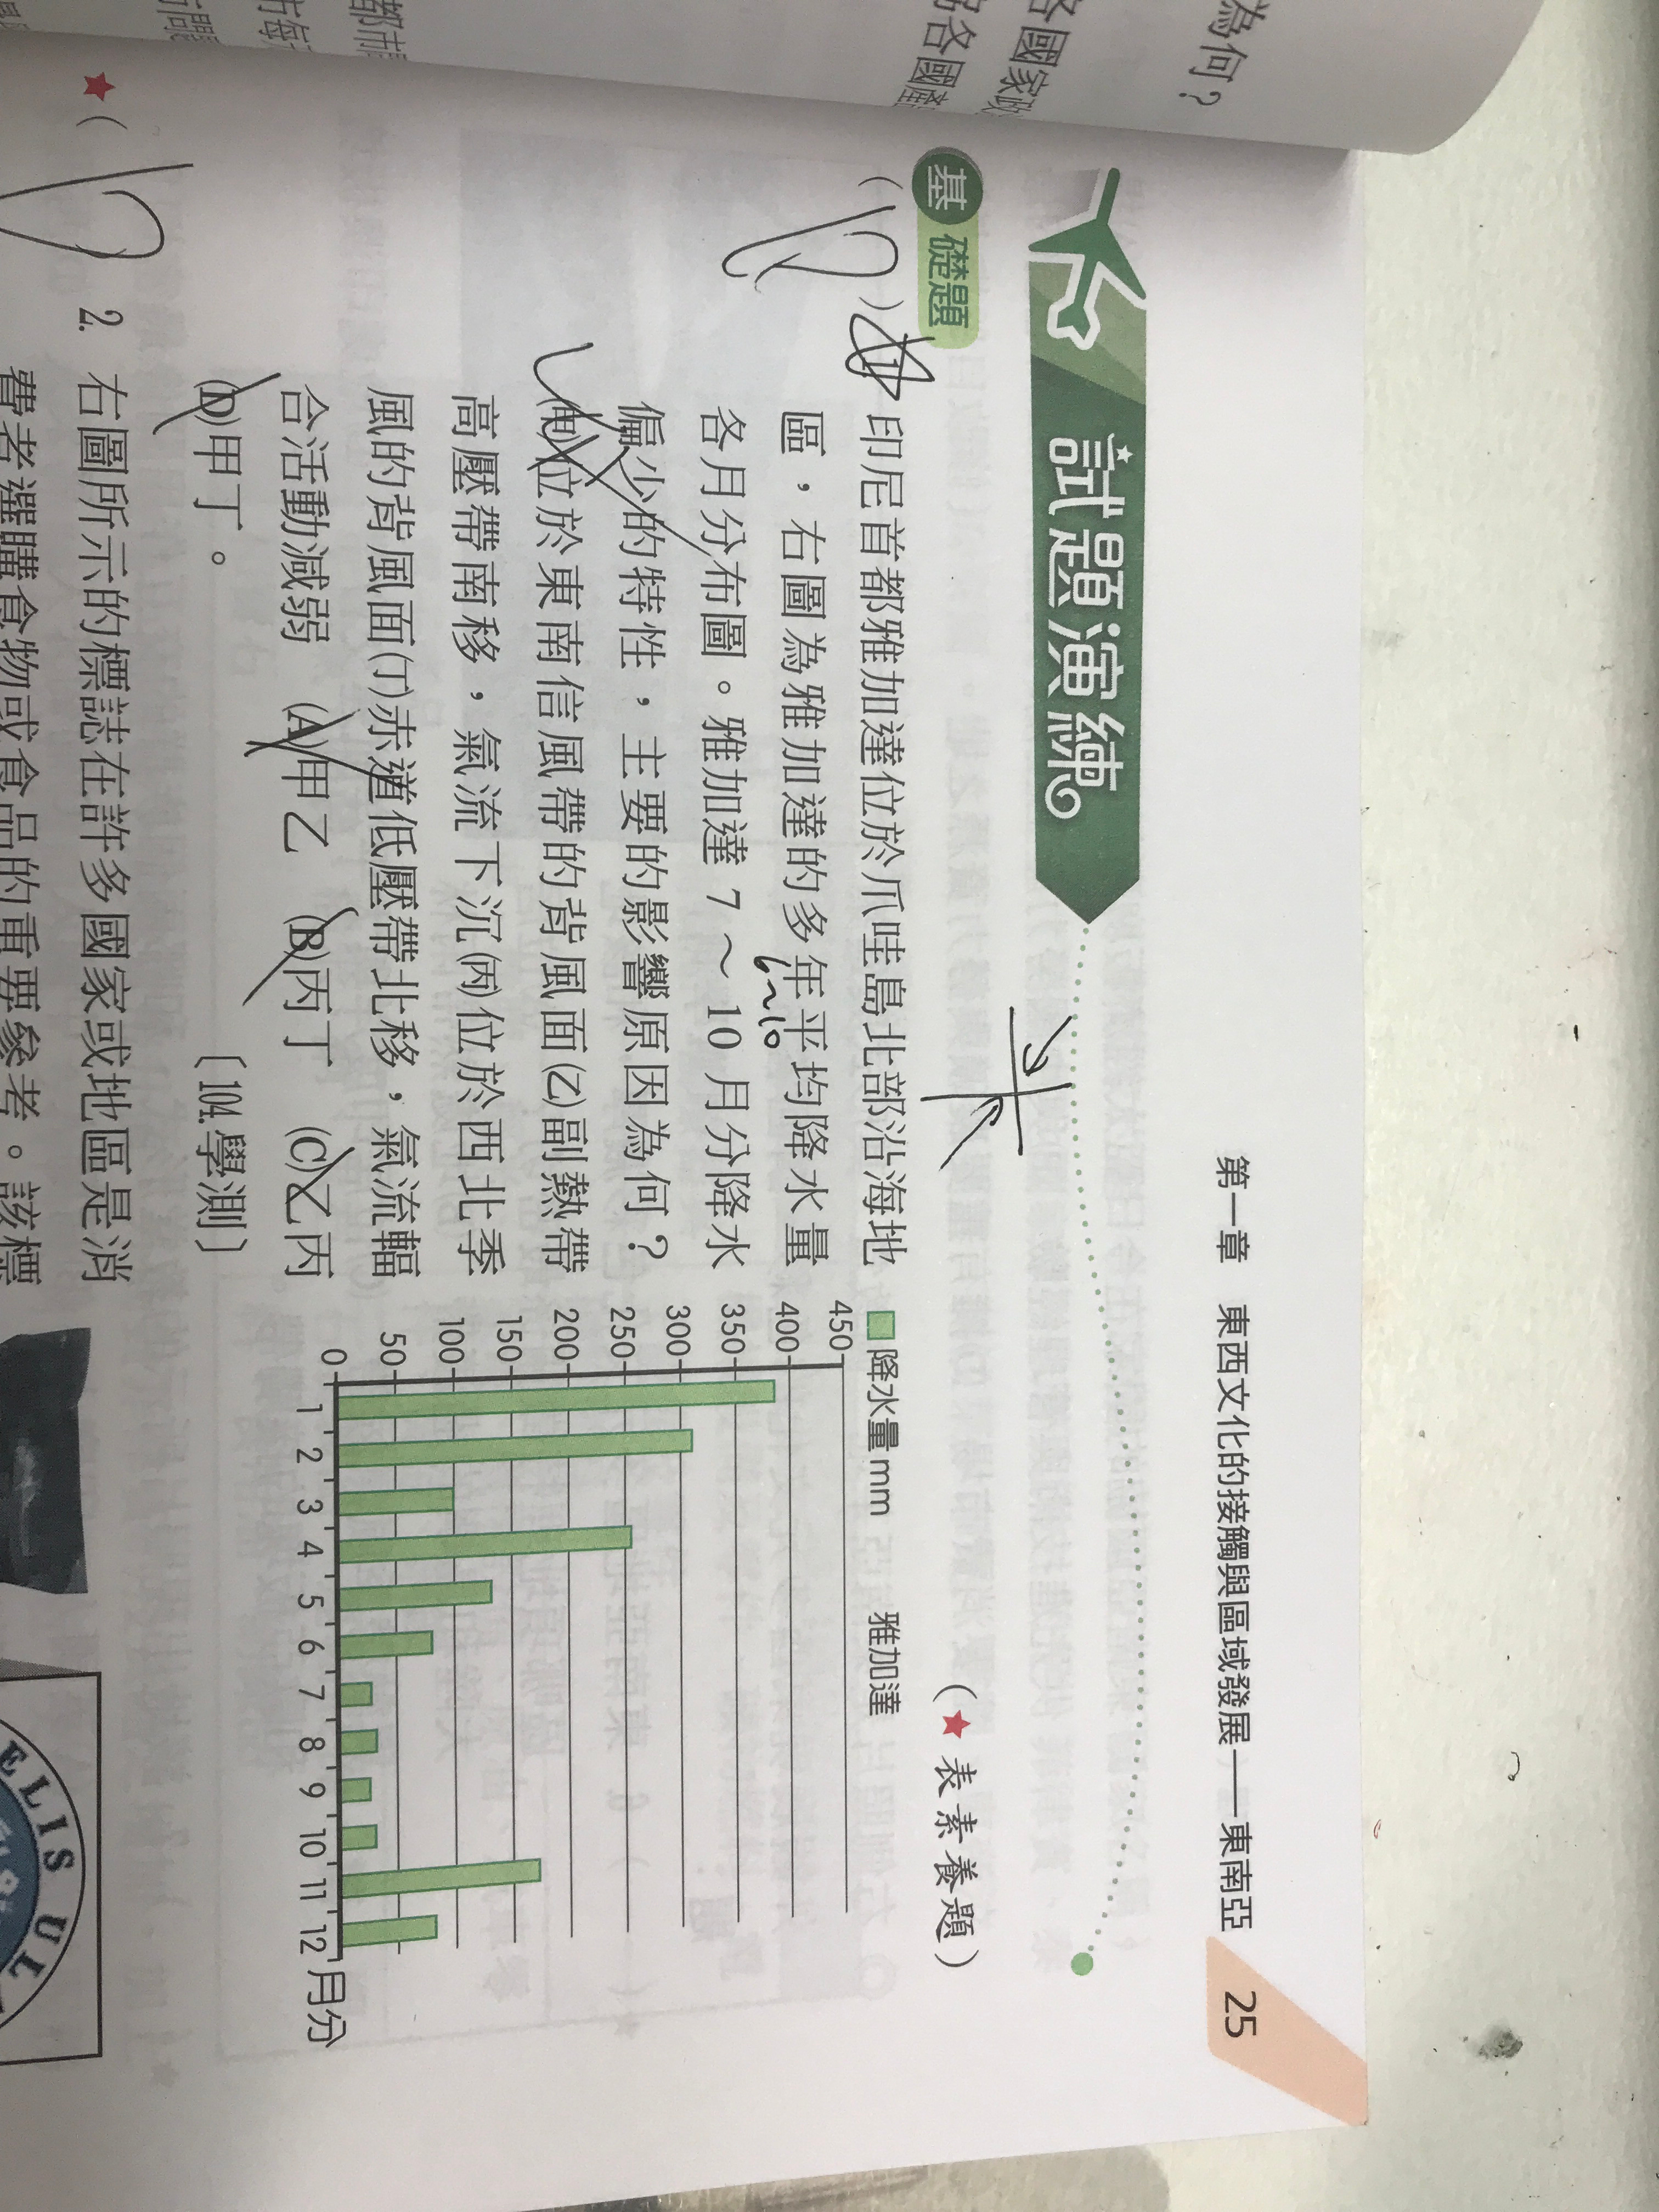 為何?
各國家政
各國
第一章 東西文化的接觸與區域發展——東南亞 25
試題演練
基礎題
(★表素養題)
( D ) 1. 印尼首都雅加達位於爪哇島北部沿海地
區,右圖為雅加達的多年平均降水量
6~10
各月分布圖。雅加達 7 ~ 10 月分降水
偏少的特性,主要的影響原因為何?
(甲)位於東南信風帶的背風面(乙)副熱帶
高壓帶南移,氣流下沉(丙)位於西北季
風的背風面(丁)赤道低壓帶北移,氣流輻
合活動減弱 (A)甲乙 (B)丙丁 (C)乙丙
(D)甲丁。 〔104.學測〕
降水量 mm 雅加達
450
400
350
300
250
200
150
100
50
0
1 2 3 4 5 6 7 8 9 10 11 12 月分
★( D ) 2. 右圖所示的標誌在許多國家或地區是消
費者選購食物或食品的重要參考。該標
ELIS UL